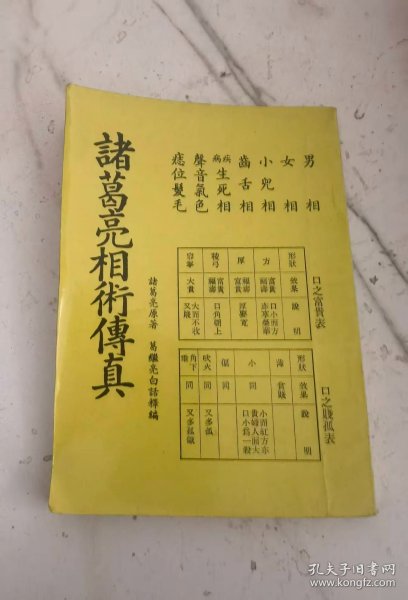 男相
女相
小兒相
齒舌相
疾病生死相
聲音氣色
痣位髮毛
諸葛亮相術傳真
諸葛亮原著 葛繼亮白話釋編
口之富貴表
形狀 效果 說明
方 富貴 口小而方亦享榮華
厚 福壽富貴 厚
稜弓 富貴福壽 口角朝上
容拳 大貴 大而不收又賤
口之賤孤表
形狀 效果 說明
薄 貧賤
小 同 小而紅方亦貴婦人面大口小為一般
偏 同
吹火 同 又多孤
角下垂 同 又多孤
孔夫子旧书网
www.kongfz.com